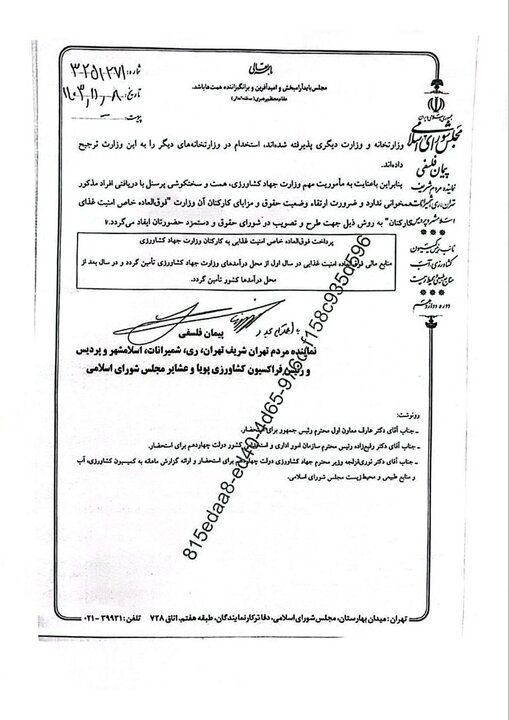 باسمه تعالی
مجلس باید آرام‌بخش و امیدآفرین و برانگیزاننده همت‌ها باشد.
مقام معظم رهبری (مدظله‌العالی)
شماره: ۳-۲۵۱۲۷۱
تاریخ: ۱۴۰۳,۱۱,۰۸
پیوست:
مجلس شورای اسلامی
پیمان فلسفی
نماینده مردم شریف
تهران، ری، شمیرانات
اسلامشهر و پردیس
نائب رئیس کمیسیون
کشاورزی، آب
منابع طبیعی و محیط زیست
دوره دوازدهم
وزارتخانه و وزارت دیگری پذیرفته شده‌اند، استخدام در وزارتخانه‌های دیگر را به این وزارت ترجیح
داده‌اند.
بنابراین باعنایت به مأموریت مهم وزارت جهاد کشاورزی، همت و سختکوشی پرسنل با دریافتی افراد مذکور
همخوانی ندارد و ضرورت ارتقاء وضعیت حقوق و مزایای کارکنان آن وزارت "فوق‌العاده خاص امنیت غذایی
کارکنان" به روش ذیل جهت طرح و تصویب در شورای حقوق و دستمزد حضورتان ایفاد می‌گردد.
پرداخت فوق‌العاده خاص امنیت غذایی به کارکنان وزارت جهاد کشاورزی
منابع مالی فوق‌العاده امنیت غذایی در سال اول از محل درآمدهای وزارت جهاد کشاورزی تأمین گردد و در سال بعد از
محل درآمدها کشور تأمین گردد.
پیمان فلسفی
نماینده مردم تهران شریف تهران، ری، شمیرانات، اسلامشهر و پردیس
و رئیس فراکسیون کشاورزی پویا و عشایر مجلس شورای اسلامی
815edaa8-ed40-4d65-9f6c-f158c935d596
رونوشت:
ـ جناب آقای دکتر عارف معاون اول محترم رئیس جمهور برای استحضار.
ـ جناب آقای دکتر رفیع‌زاده رئیس محترم سازمان امور اداری و استخدامی کشور دولت چهاردهم برای استحضار.
ـ جناب آقای دکتر نوری‌قزلجه وزیر محترم جهاد کشاورزی دولت چهاردهم برای استحضار و ارائه گزارش ماهانه به کمیسیون کشاورزی، آب
و منابع طبیعی و محیط زیست مجلس شورای اسلامی.
تهران: میدان بهارستان، مجلس شورای اسلامی، دفاتر کار نمایندگان، طبقه هفتم، اتاق ۷۲۸ تلفن: ۳۹۹۳۱-۰۲۱